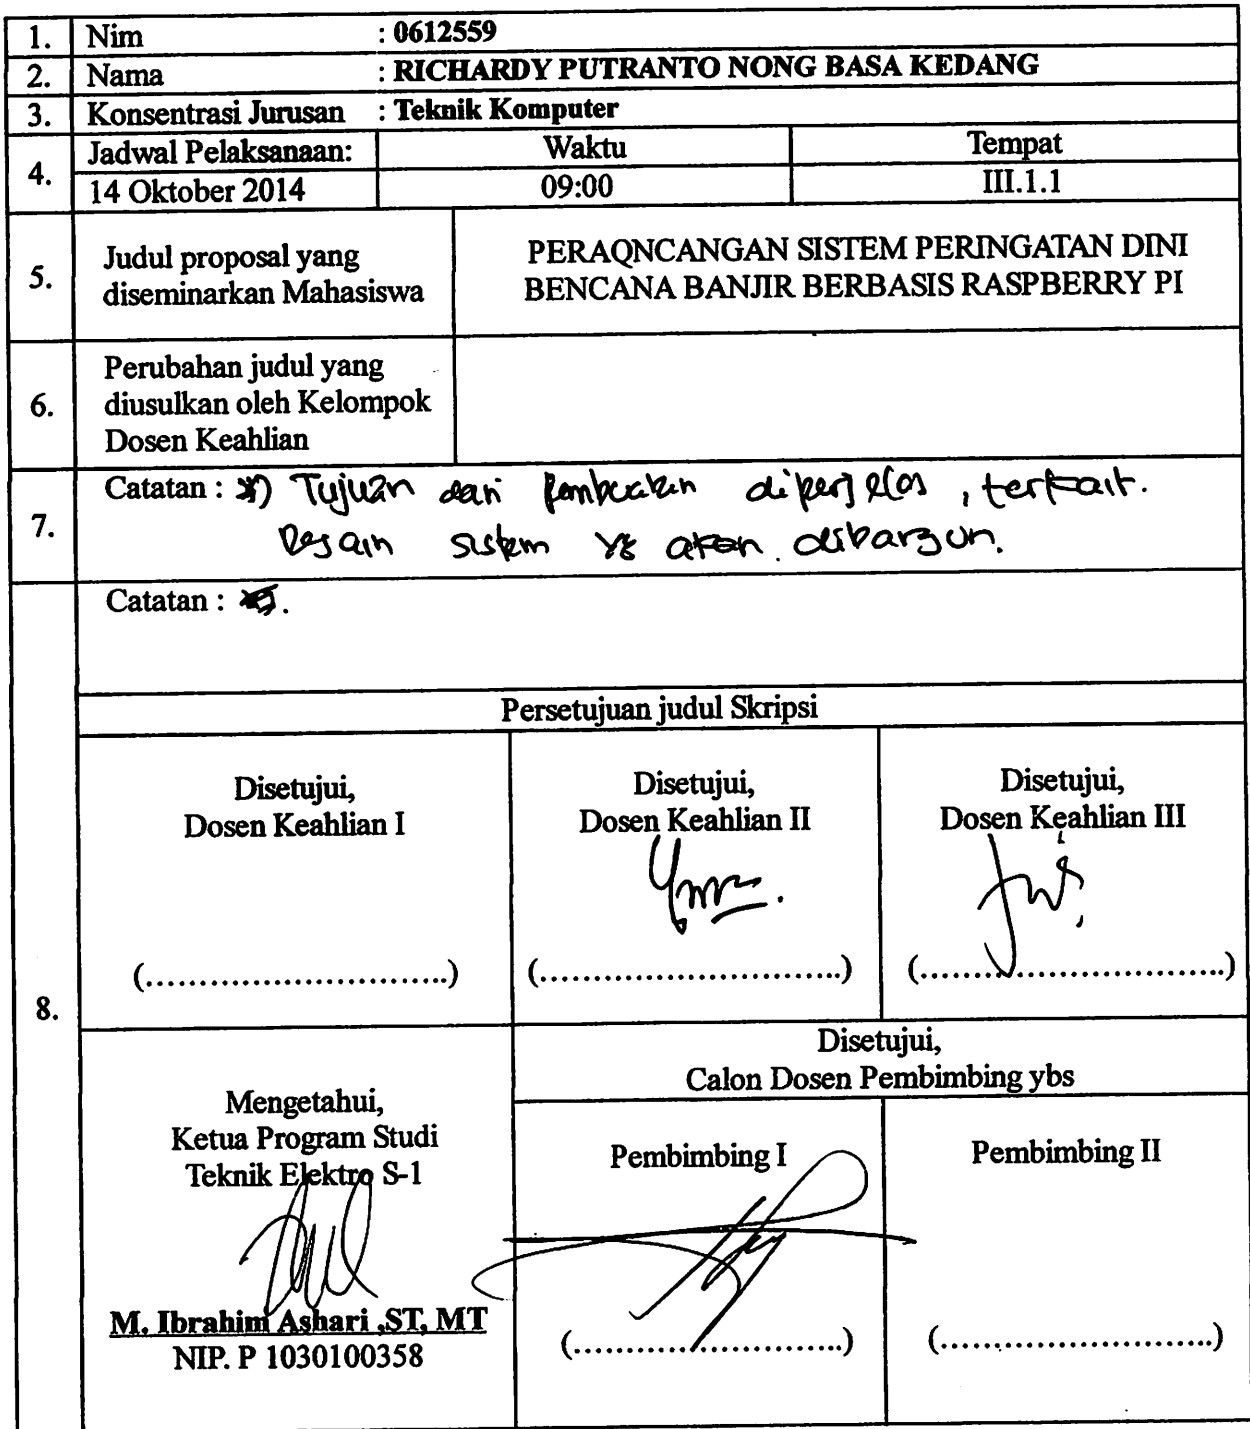 1. Nim : 0612559
2. Nama : RICHARDY PUTRANTO NONG BASA KEDANG
3. Konsentrasi Jurusan : Teknik Komputer
4. Jadwal Pelaksanaan: Waktu Tempat
14 Oktober 2014 09:00 III.1.1
5. Judul proposal yang
diseminarkan Mahasiswa
PERAQNCANGAN SISTEM PERINGATAN DINI
BENCANA BANJIR BERBASIS RASPBERRY PI
6. Perubahan judul yang
diusulkan oleh Kelompok
Dosen Keahlian
7. Catatan : *) Tujuan dari pembuatan diperjelas, terkait.
Desain sistem yg akan dibangun.
8. Catatan :
Persetujuan judul Skripsi
Disetujui,
Dosen Keahlian I
(............................)
Disetujui,
Dosen Keahlian II
(............................)
Disetujui,
Dosen Keahlian III
(............................)
Mengetahui,
Ketua Program Studi
Teknik Elektro S-1
M. Ibrahim Ashari ,ST, MT
NIP. P 1030100358
Disetujui,
Calon Dosen Pembimbing ybs
Pembimbing I
(.........................)
Pembimbing II
(.........................)